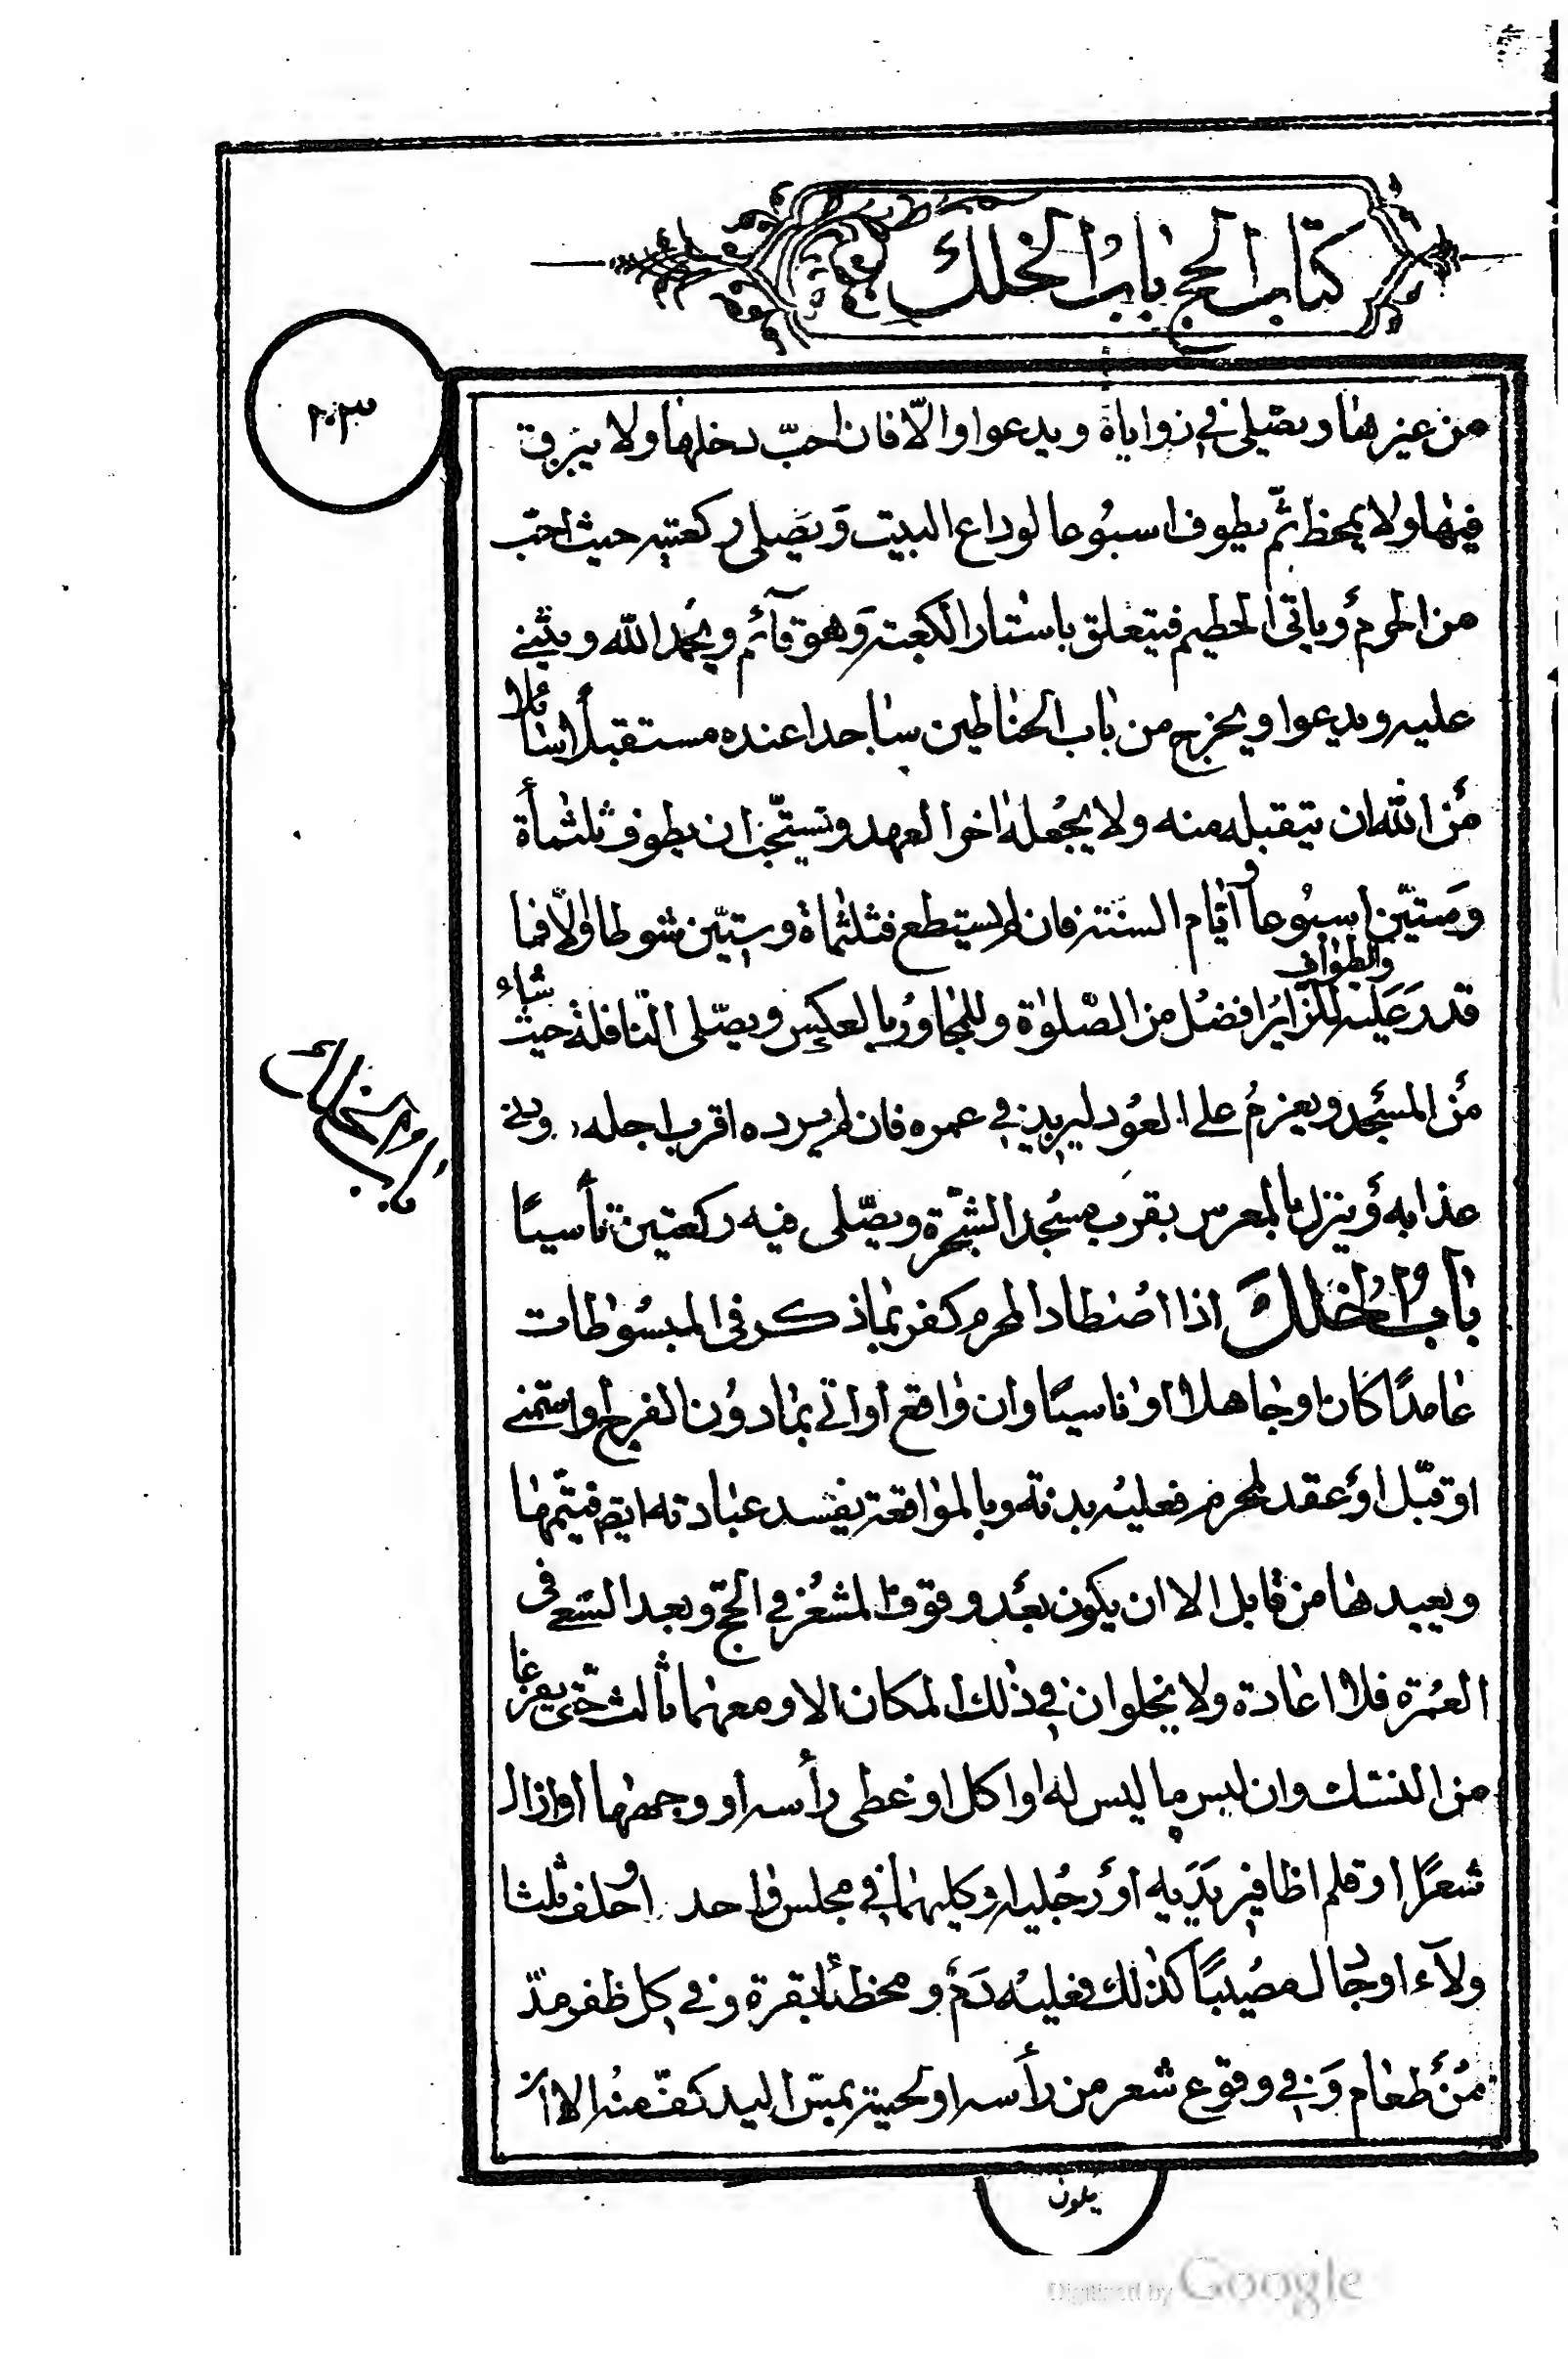 كتاب الحج باب الخلل
٢٠٣
من غيرها ويصلى في زواياه ويدعوا والّا فان احبّ دخلها ولا يبزق
فيها ولا يمخط ثمّ يطوف اسبُوعا لوداع البيت وَيصَلى ركعتيه حيث احبّ
من الحرم وياتى الحطيم فيتعلق باستار الكعبة وَهو قآئم ويحمد الله ويثني
عليه ويدعوا ويخرج من باب الحناطين ساجدا عنده مستقبلاً سائلا
من الله ان يتقبله منه ولا يجعله اخر العهد وتستحبّ ان يطوف ثلثمأة
وَستيّن اسبُوعاً و ايّام السنة فان لم يستطع فثلثمأة وستيّن شوطا والّا فما
قدر عَليه والطواف للزايرُ افضل من الصّلوة وللمجاورُ بالعكس ويصّلى النّافلة حيث شاء
من المسجد ويعزمُ على العوُد ليزيد في عمره فان لم يرده اقرب اجله ودنى
عذابه وَينزل بالمعرس بقرب مسجد الشجرة ويصّلى فيه ركعتين تأسيًا
باب الخلل اذا اصطاد المحرم كفر بما ذكر فى المبسُوطات
عامدًا كان اوجاهلا او ناسيًا وان واقع او اتى بما دوُن الفرج او استمنى
او قبّل او عقد لمحرم فعليه بدنة وبالموٰاقعة يفسد عبادته ايضا فيتمّها
ويعيدها من قابل الا ان يكون بعَد وقوف المشعر في الحجّ وبعد السّعى فى
العمُرة فلا اعادة ولا يخلوان في ذلك المكان الا ومعهما ثالث حتى يفرغا
من النسك وان لبس ما ليس له او اكل او غطى رأسه او وجهها او ازال
شعرًا او قلم اظافير يَدَيه او رجُليه او كليهما في مجلس واحد او حلف ثلثا
ولآء او جٰادل مصُيبًا كذلك فعليه دَم ومخطئا بقرة وفي كل ظفر مدّ
من طعام وَفي وقوع شعر من رأسه او لحيته بمسّ اليد كفّ منه الا ان
باب الخلل
يكون
Digitized by Google